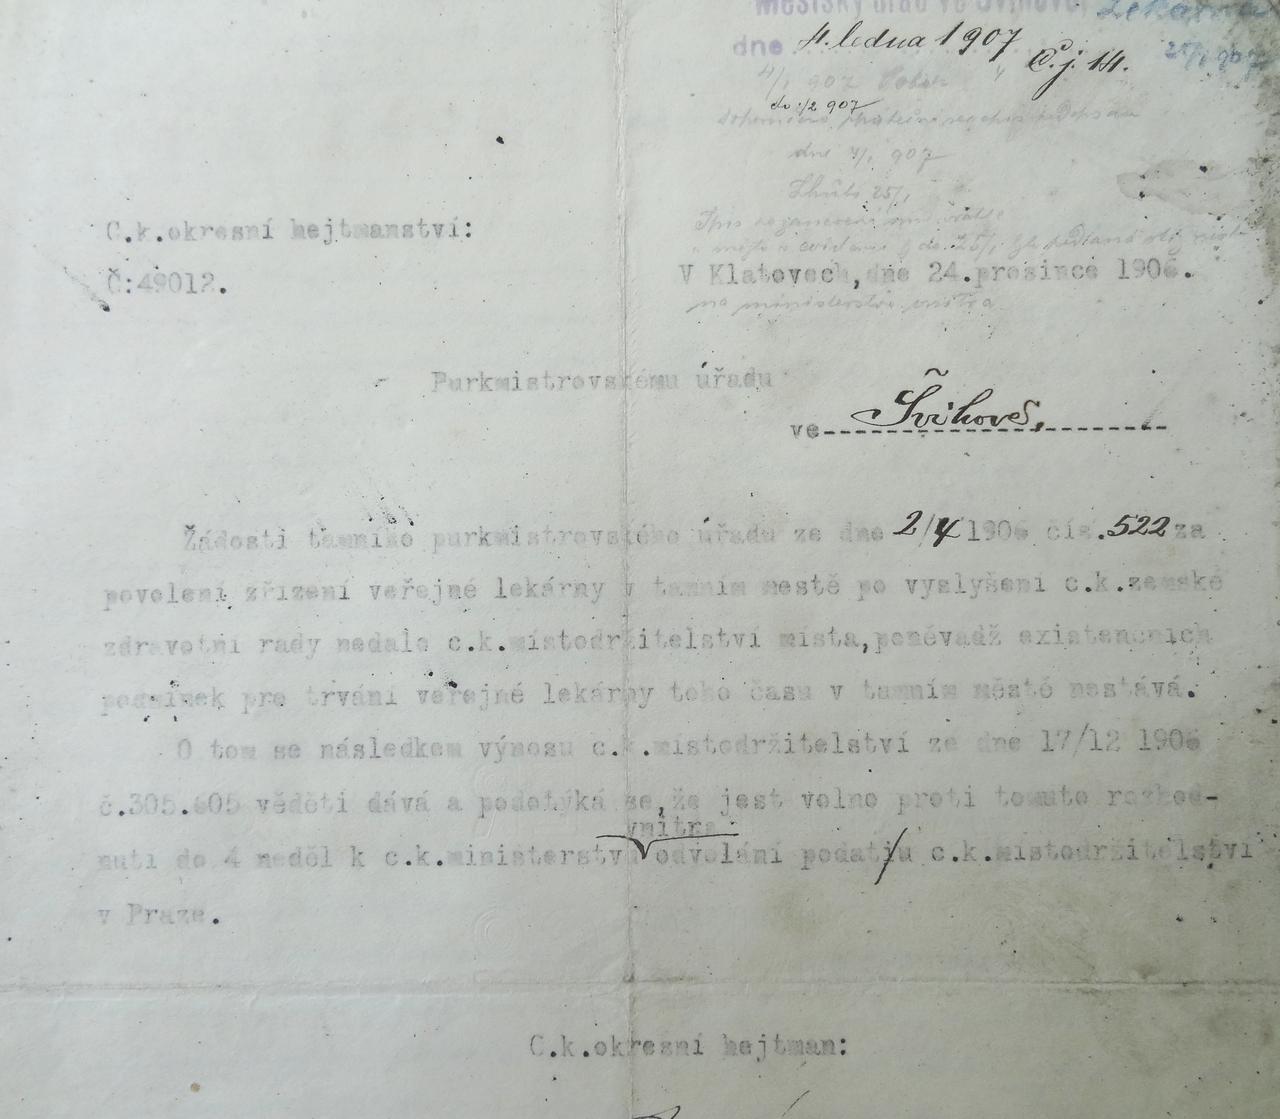 Městský úřad ve Švihově. Lékárna
dne 4. ledna 1907 Č.j. 14. 25/1 907
4/1 907
do 1/2 907
dne 4/1 907
Lhůta 25/1
C.k.okresní hejtmanství:
Č:49012.
V Klatovech,dne 24.prosince 1906.
na ministerstvo vnitra
Purkmistrovskému úřadu
ve Švihově,
Žádosti tamního purkmistrovského úřadu ze dne 2/4 1906 čís.522 za
povolení zřízení veřejné lekárny v tamním mestě po vyslyšení c.k.zemské
zdravotní rady nedalo c.k.místodržitelství místa,poněvadž existenčních
podmínek pro trvání veřejné lekárny toho času v tamním městě nestává.
O tom se následkem výnosu c.k.místodržitelství ze dne 17/12 1906
č.305.605 věděti dává a podotýká se,že jest volno proti tomuto rozhod-
vnitra
nutí do 4 neděl k c.k.ministerstvu odvolání podati u c.k.místodržitelství
v Praze.
C.k.okresní hejtman: